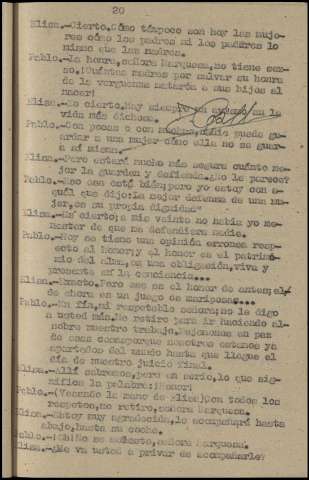 20
Elisa.-Cierto.Cómo tampoco son hoy las muje-
res cómo los padres ni los padres lo
mismo que las madres.
Pablo.-La honra,señora Marquesa,no tiene sexo.
¡Cuántas madres por salvar su honra
de la verguenza matarán a sus hijos al
nacer!
Elisa.-Es cierto.Hay siempre en la
vida más dichosa.
Pablo.-Con pocas o con muchas,nadie puede guardar
a una mujer cómo ella no se guarde
a sí misma.
Elisa.-Pero estará mucho más segura cuánto mejor
la guarden y defienda.¿No le parece?
Pablo.-Eso está bién;pero yo estoy con aquél
que dijo:La mejor defensa de una mujer,es
su propia dignidad.
Elisa.-Es cierto;a mis veinte no había yo menester
de que me defendiera nadie.
Pablo.-Hoy se tiene una opinión erronea respecto
al Honor;y el honor es el patrimonio
del alma,es una obligación,viva y
presente en la conciencia...
Elisa.-Exacto.Pero ese es el honor de antes;el
de ahora es un juego de mariposas...
Pablo.-En fín,mi respetable señora:no le digo
a usted más.Me retiro para ir haciendo
nuestro trabajo.
de casa nosotros estamos ya
apartados del mundo hasta que llegue el
día de nuestro juicio final.
Elisa.-Allí sabremos,pero en serio,lo que significa
la palabra:¡Honor!
Pablo.-(Besando la mano de Elisa)Con todos los
respetos,me retiro,señora Marquesa.
Elisa.-Estoy muy agradecida,lo acompañaré hasta
abajo,hasta su coche.
Pablo.-¡Oh!No se moleste,señora Marquesa.
Elisa.-¿Me va usted a privar de acompañarle?